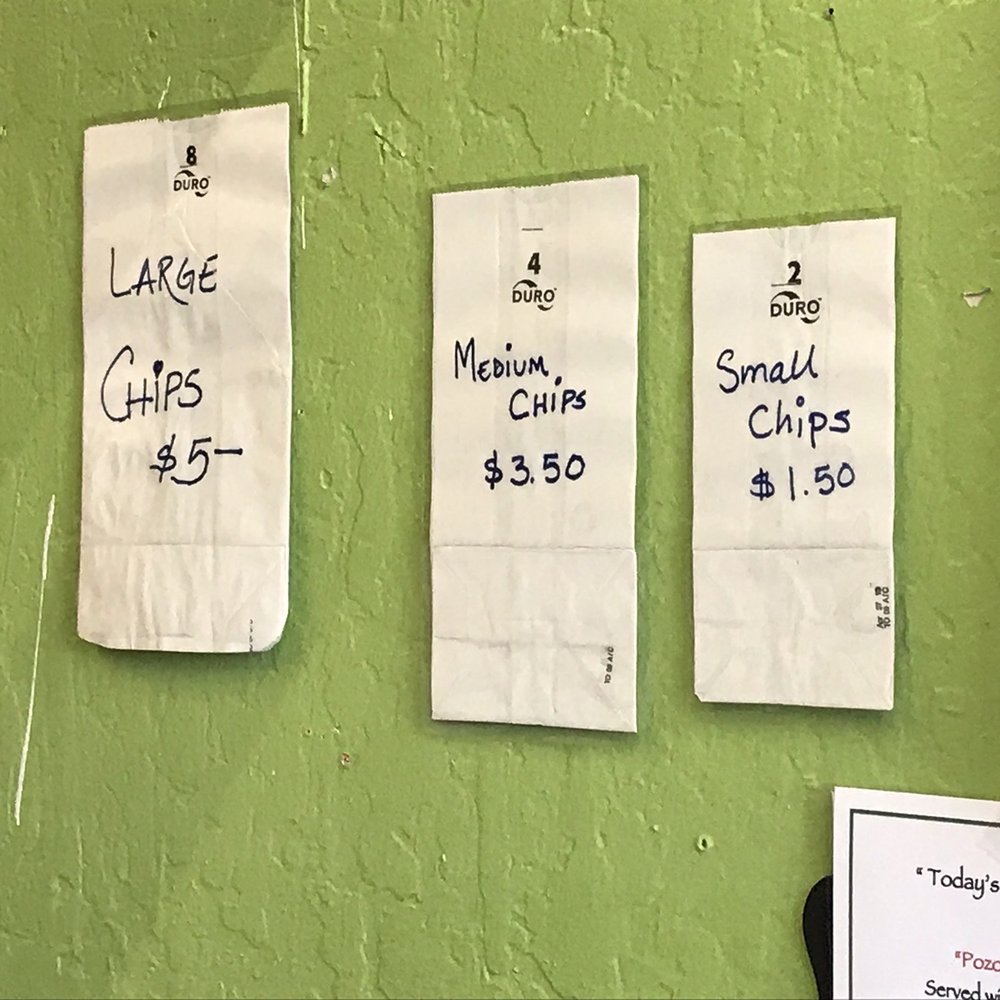 8
DURO
LARGE
CHIPS
$5–
4
DURO
MEDIUM
CHIPS
$3.50
2
DURO
Small
Chips
$1.50
"Today's
"Pozo
Served